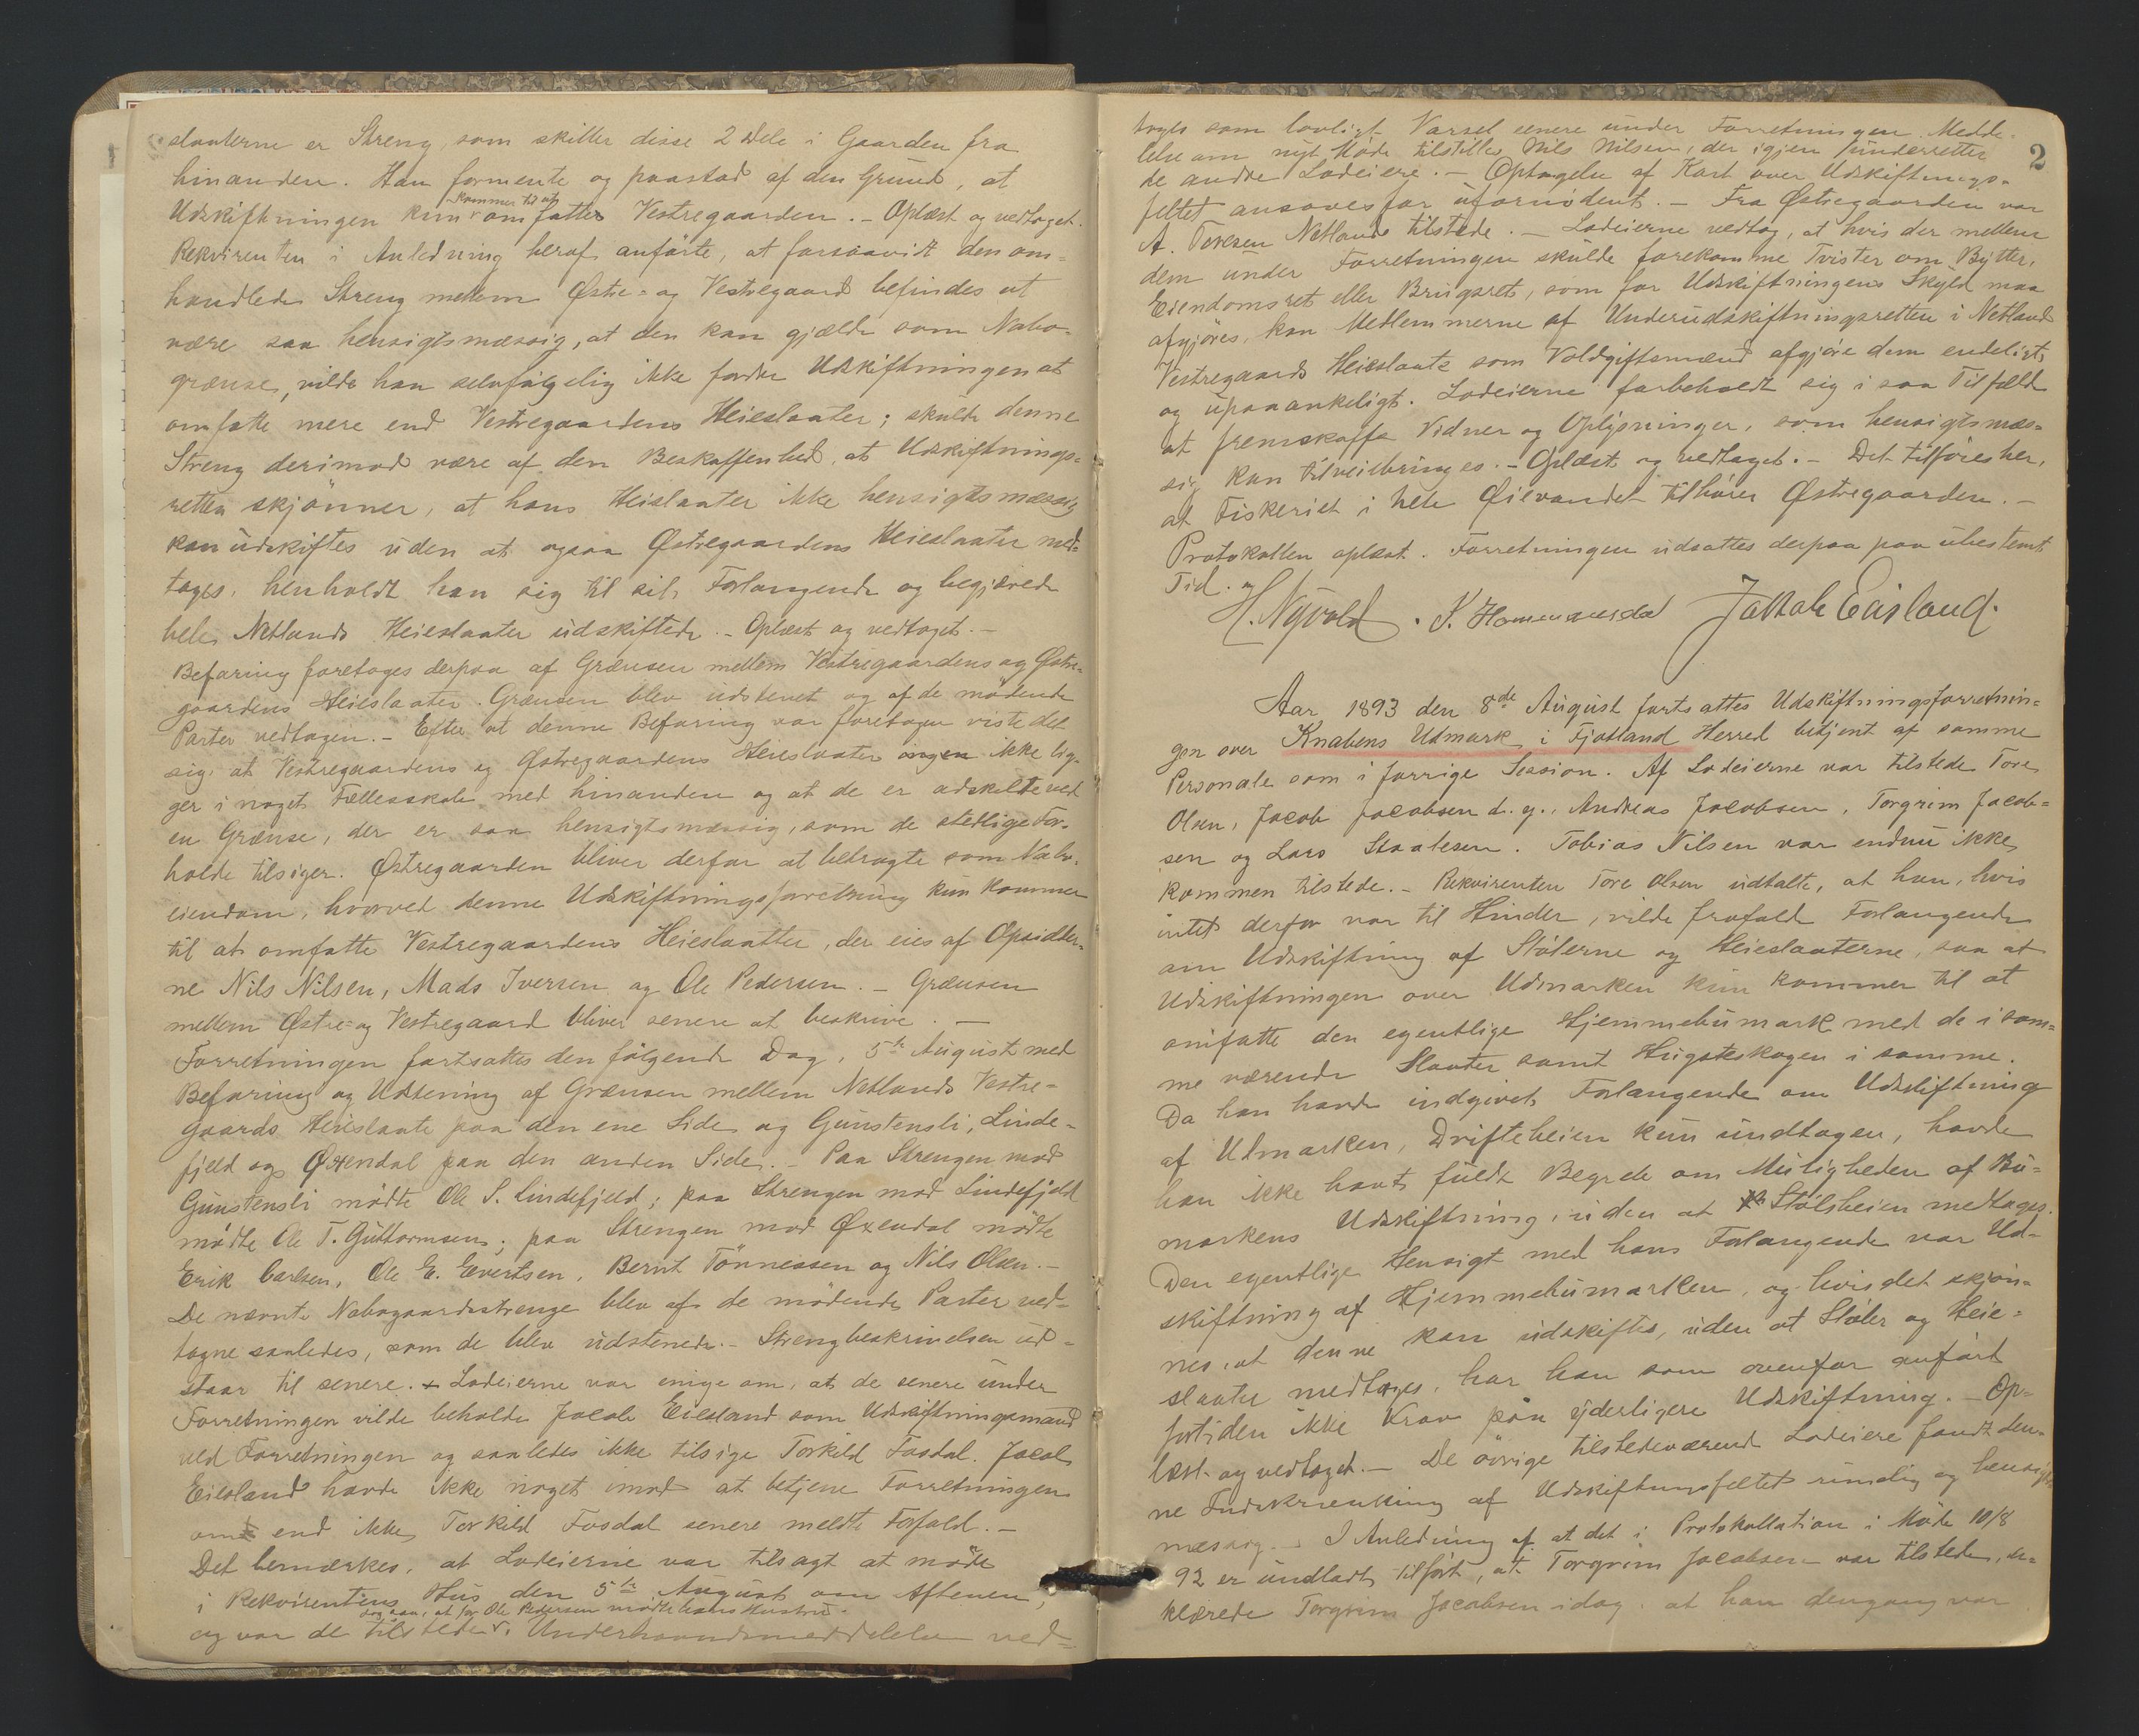 slaaterne er Streng, som skiller disse 2 Dele i Gaarden fra
hinanden. Han formente og paastod af den Grund, at
Udskiftningen kun kommer til at omfatte Vestregaarden. - Oplæst og vedtaget.
Rekvirenten i Anledning heraf anførte, at forsaavidt den om-
handlede Streng mellem Østre- og Vestregaard befindes at
være saa hensigtsmæssig, at den kan gjælde som Nabo-
grænse, vilde han selvfølgelig ikke fordre Udskiftningen at
omfatte mere end Vestregaardens Heieslaater; skulde denne
Streng derimod være af den Beskaffenhed, at Udskiftnings-
retten skjønner, at hans Heislaater ikke hensigtsmæssig
kan udskiftes uden at ogsaa Østregaardens Heieslaater med-
tages, henholdt han sig til sit Forlangende og begjærede
hele Netlands Heieslaater udskiftede. - Oplæst og vedtaget. -
Befaring foretoges derpaa af Grænsen mellem Vestregaardens og Østre-
gaardens Heieslaater. Grænsen blev udstenet og af de mødende
Parter vedtagen. - Efter at denne Befaring var foretagen viste det
sig, at Vestregaardens og Østregaardens Heieslaater ikke lig-
ger i noget Fællesskab med hinanden og at de er adskilte ved
en Grænse, der er saa hensigtsmæssig, som de stedlige For-
holde tilsiger. Østregaarden bliver derfor at betragte som Nabo-
eiendom, hvorved denne Udskiftningsforretning kun kommer
til at omfatte Vestregaardens Heieslaatter, der eies af Opsidder-
ne Nils Nilsen, Mads Iversen og Ole Pedersen. - Grænsen
mellem Østre- og Vestregaard bliver senere at beskrive. -
Forretningen fortsattes den følgende Dag, 5te August med
Befaring og Udstening af Grænsen mellem Netlands Vestre-
gaards Heieslaate paa den ene Side og Gunstensli, Linde-
fjeld og Øxendal paa den anden Side. - Paa Strengen mod
Gunstensli mødte Ole S. Lindefjeld; paa Strengen mod Lindefjeld
mødte Ole T. Guttormsen; paa Strengen mod Øxendal mødte
Erik Carlsen, Ole E. Evertsen, Bernt Tønnessen og Nils Olsen. -
De nævnte Nabogaardsstrenge blev af de mødende Parter ved-
tagne saaledes, som de blev udstenede. - Strengbeskrivelsen ud-
staar til senere. - Lodeierne var enige om, at de senere under
Forretningen vilde beholde Jacob Eiesland som Udskiftningsmand
ved Forretningen og saaledes ikke tilsige Torkild Fosdal. Jacob
Eiesland havde ikke noget imod at betjene Forretningen
om end ikke Torkild Fosdal senere meldte Forfald. -
Det bemærkes, at Lodeierne var tilsagt at møde
i Rekvirentens Hus den 5te August om Aftenen,
saa, at for Ole Pedersen mødte hans Hustru.
og var de tilstede. Underhaandsmeddelelse ved-
2
toges som lovligt Varsel senere under Forretningen. Medde-
lelse om nyt Møde tilstilles Nils Nilsen, der igjen underretter
de andre Lodeiere. - Optagelse af Kart over Udskiftnings-
feltet ansaaes for ufornødent. - Fra Østregaarden var
A. Teresen Netland tilstede. - Lodeierne vedtog, at hvis der mellem
dem under Forretningen skulde forekomme Tvister om Bytter,
Eiendomsret eller Brugsret, som for Udskiftningens Skyld maa
afgjøres, kan Medlemmerne af Underudskiftningsretten i Netland
Vestregaards Heieslaate som Voldgiftsmænd afgjøre dem endeligt
og upaaankeligt. Lodeierne forbeholdt sig i saa Tilfælde
at fremskaffe Vidner og Oplysninger, som hensigtsmæs-
sig kan tilveiebringes. - Oplæst og vedtaget. - Det tilføies her,
at Fiskeriet i hele Øievandet tilhører Østregaarden. -
Protokollen oplæst. Forretningen udsattes derpaa paa ubestemt
Tid.
H. Nyvold. K. Homensdal Jakob Eiesland.
Aar 1893 den 8de August fortsattes Udskiftningsforretnin-
gen over Knabens Udmark i Fjotland Herred betjent af samme
Personale som i forrige Session. Af Lodeierne var tilstede Tore
Olsen, Jacob Jacobsen d. y., Andreas Jacobsen, Torgrim Jacob-
sen og Lars Staalesen. Tobias Nilsen var endnu ikke
kommen tilstede. - Rekvirenten Tore Olsen udtalte, at han, hvis
intet derfor var til Hinder, vilde frafalde Forlangende
om Udskiftning af Stølerne og Heieslaaterne, saa at
Udskiftningen over Udmarken kun kommer til at
omfatte den egentlige Hjemmebumark med de i sam-
me værende Slaater samt Hugsteskogen i samme.
Da han havde indgivet Forlangende om Udskiftning
af Utmarken, Drifteheien kun undtagen, havde
han ikke havt fuldt Begreb om Muligheden af Bu-
markens Udskiftning, uden at Stølsheien medtages.
Den egentlige Hensigt med hans Forlangende var Ud-
skiftning af Hjemmebumarken, og hvis det skjøn-
nes, at denne kan udskiftes, uden at Støler og Heie-
slaater medtages, har han som ovenfor anført
fortiden ikke Krav paa yderligere Udskiftning. - Op-
læst og vedtaget. - De øvrige tilstedeværende Lodeiere fandt den-
ne Indskrænkning af Udskiftningsfeltet rimelig og hensigts-
mæssig. - I Anledning af at det i Protokollation i Møde 10/8
92 er undladt tilført, at Torgrim Jacobsen var tilstede, er-
klærede Torgrim Jacobsen idag, at han dengang var